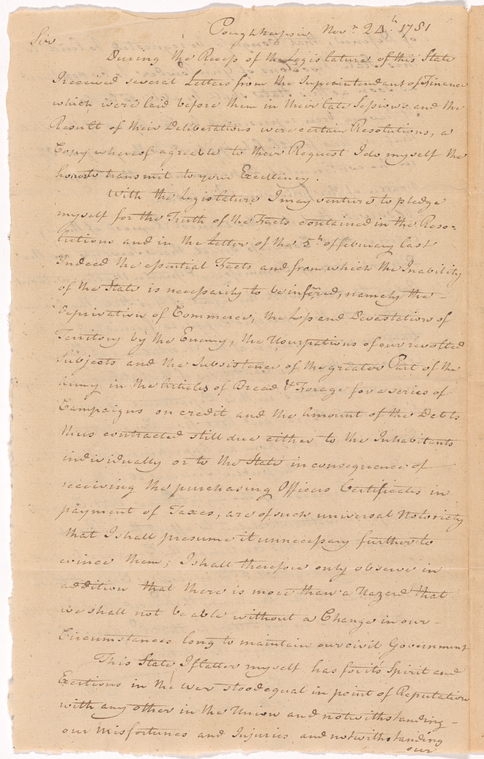 Poughkeepsie Novr. 24th. 1781
Sir
During the Recess of the Legislature of this State
I received several Letters from the Superintendant of Finance
which were laid before them in their late Sessions, and the
Result of their Deliberations were certain Resolutions, a
Copy whereof agreable to their Request I do myself the
honor to transmit to your Excellency.
With the Legislature I may venture to pledge
myself for the Truth of the Facts contained in the Reso-
lutions and in the Letter of the 5th. of february last
Indeed the essential Facts and from which the Inability
of the State is necessarily to be infered, namely the
Deprivation of Commerce, the Loss and Devastations of
Territory by the Enemy, the Usurpations of our revolted
Subjects and the Subsistence of the greater Part of the
Army in the Articles of Bread & Forage for a series of
Campaigns on credit and the Amount of the Debts
thus contracted still due either to the Inhabitants
individually or to the State in consequence of
receiving the purchasing Officers Certificates in
payment of Taxes, are of such universal Notoriety
that I shall presume it unnecessary further to
evince them; I shall therefore only observe in
addition that there is more than a Hazerd that
we shall not be able without a Change in our
Circumstances long to maintain our civil Government
This State I flatter myself has for its Spirit and
Exertions in the War stood equal in point of Reputation
with any other in the Union and notwithstanding
our Misfortunes and Injuries and notwithstanding
our